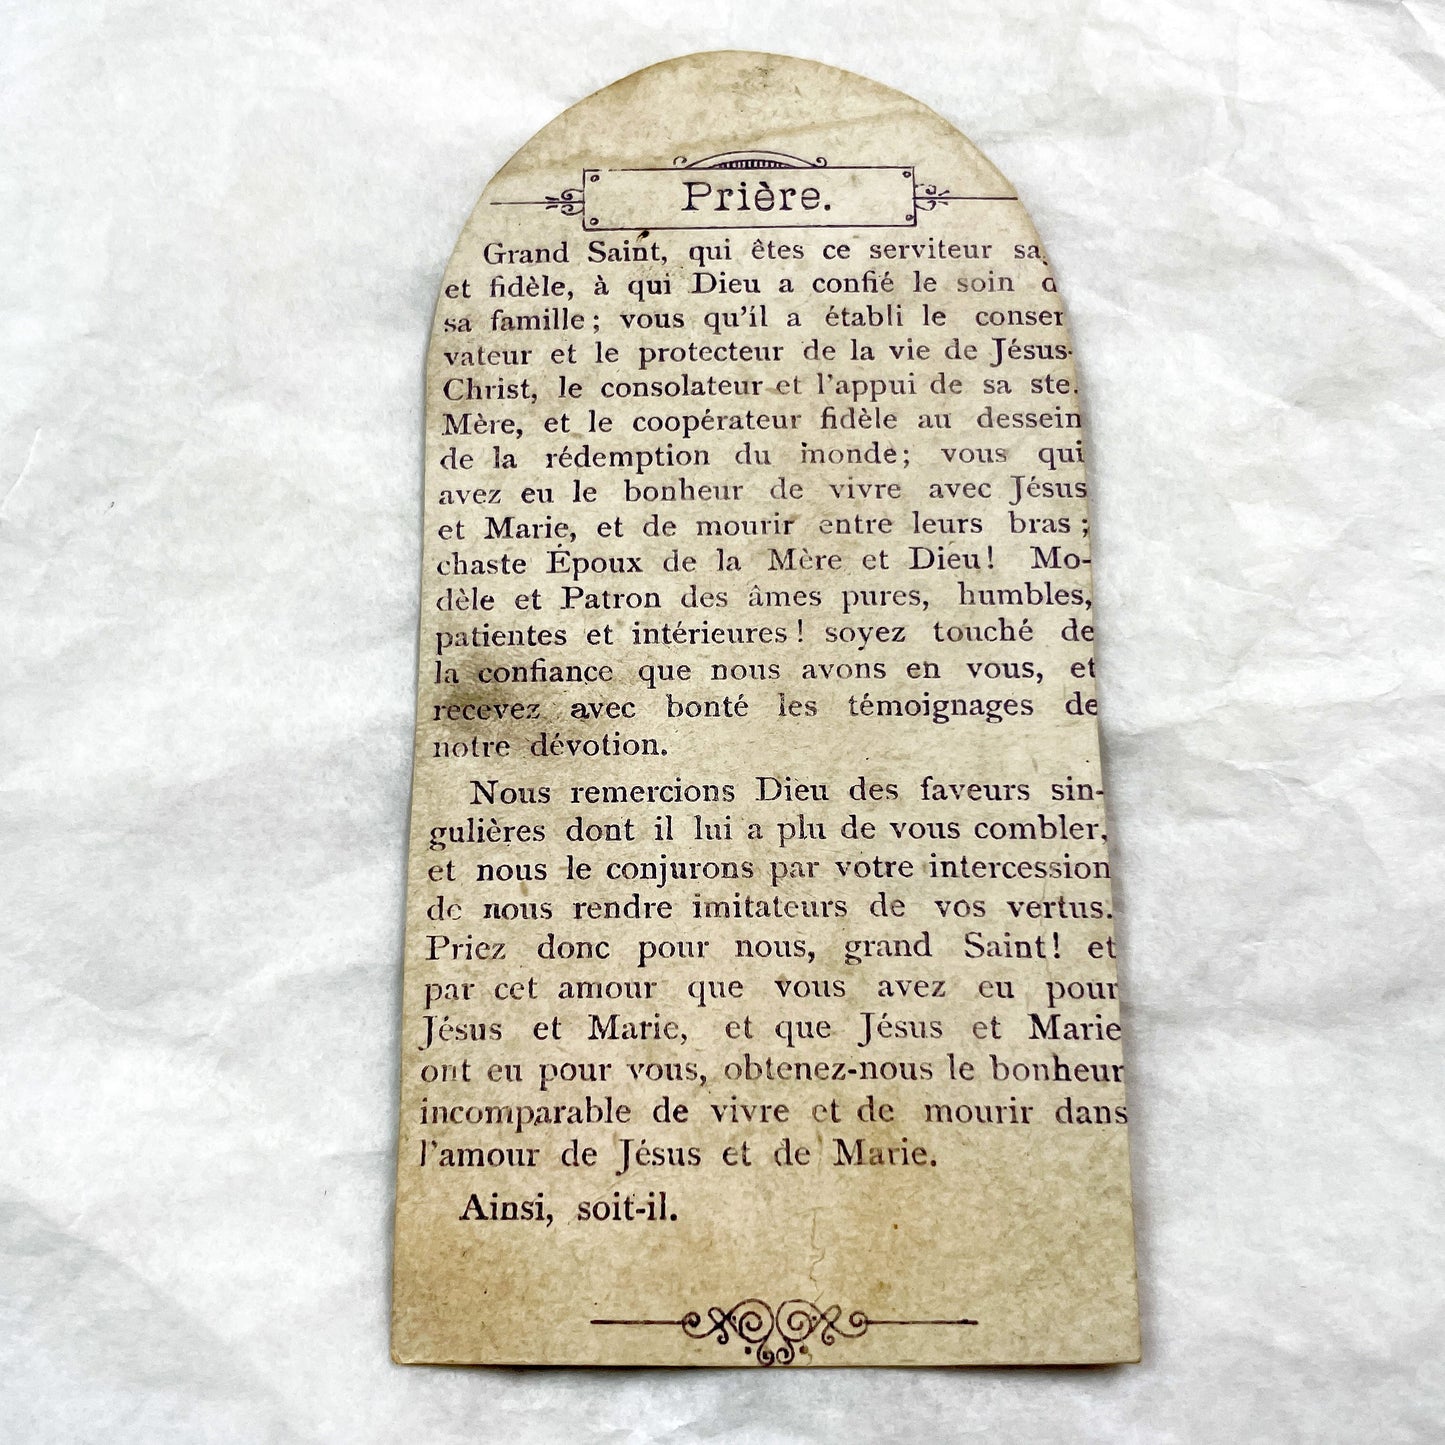 Prière.
Grand Saint, qui êtes ce serviteur sa
et fidèle, à qui Dieu a confié le soin d
sa famille; vous qu'il a établi le conser
vateur et le protecteur de la vie de Jésus-
Christ, le consolateur et l'appui de sa ste.
Mère, et le coopérateur fidèle au dessein
de la rédemption du monde; vous qui
avez eu le bonheur de vivre avec Jésus
et Marie, et de mourir entre leurs bras;
chaste Époux de la Mère et Dieu! Mo-
dèle et Patron des âmes pures, humbles,
patientes et intérieures! soyez touché de
la confiance que nous avons en vous, et
recevez avec bonté les témoignages de
notre dévotion.
Nous remercions Dieu des faveurs sin-
gulières dont il lui a plu de vous combler,
et nous le conjurons par votre intercession
de nous rendre imitateurs de vos vertus.
Priez donc pour nous, grand Saint! et
par cet amour que vous avez eu pour
Jésus et Marie, et que Jésus et Marie
ont eu pour vous, obtenez-nous le bonheur
incomparable de vivre et de mourir dans
l'amour de Jésus et de Marie.
Ainsi, soit-il.